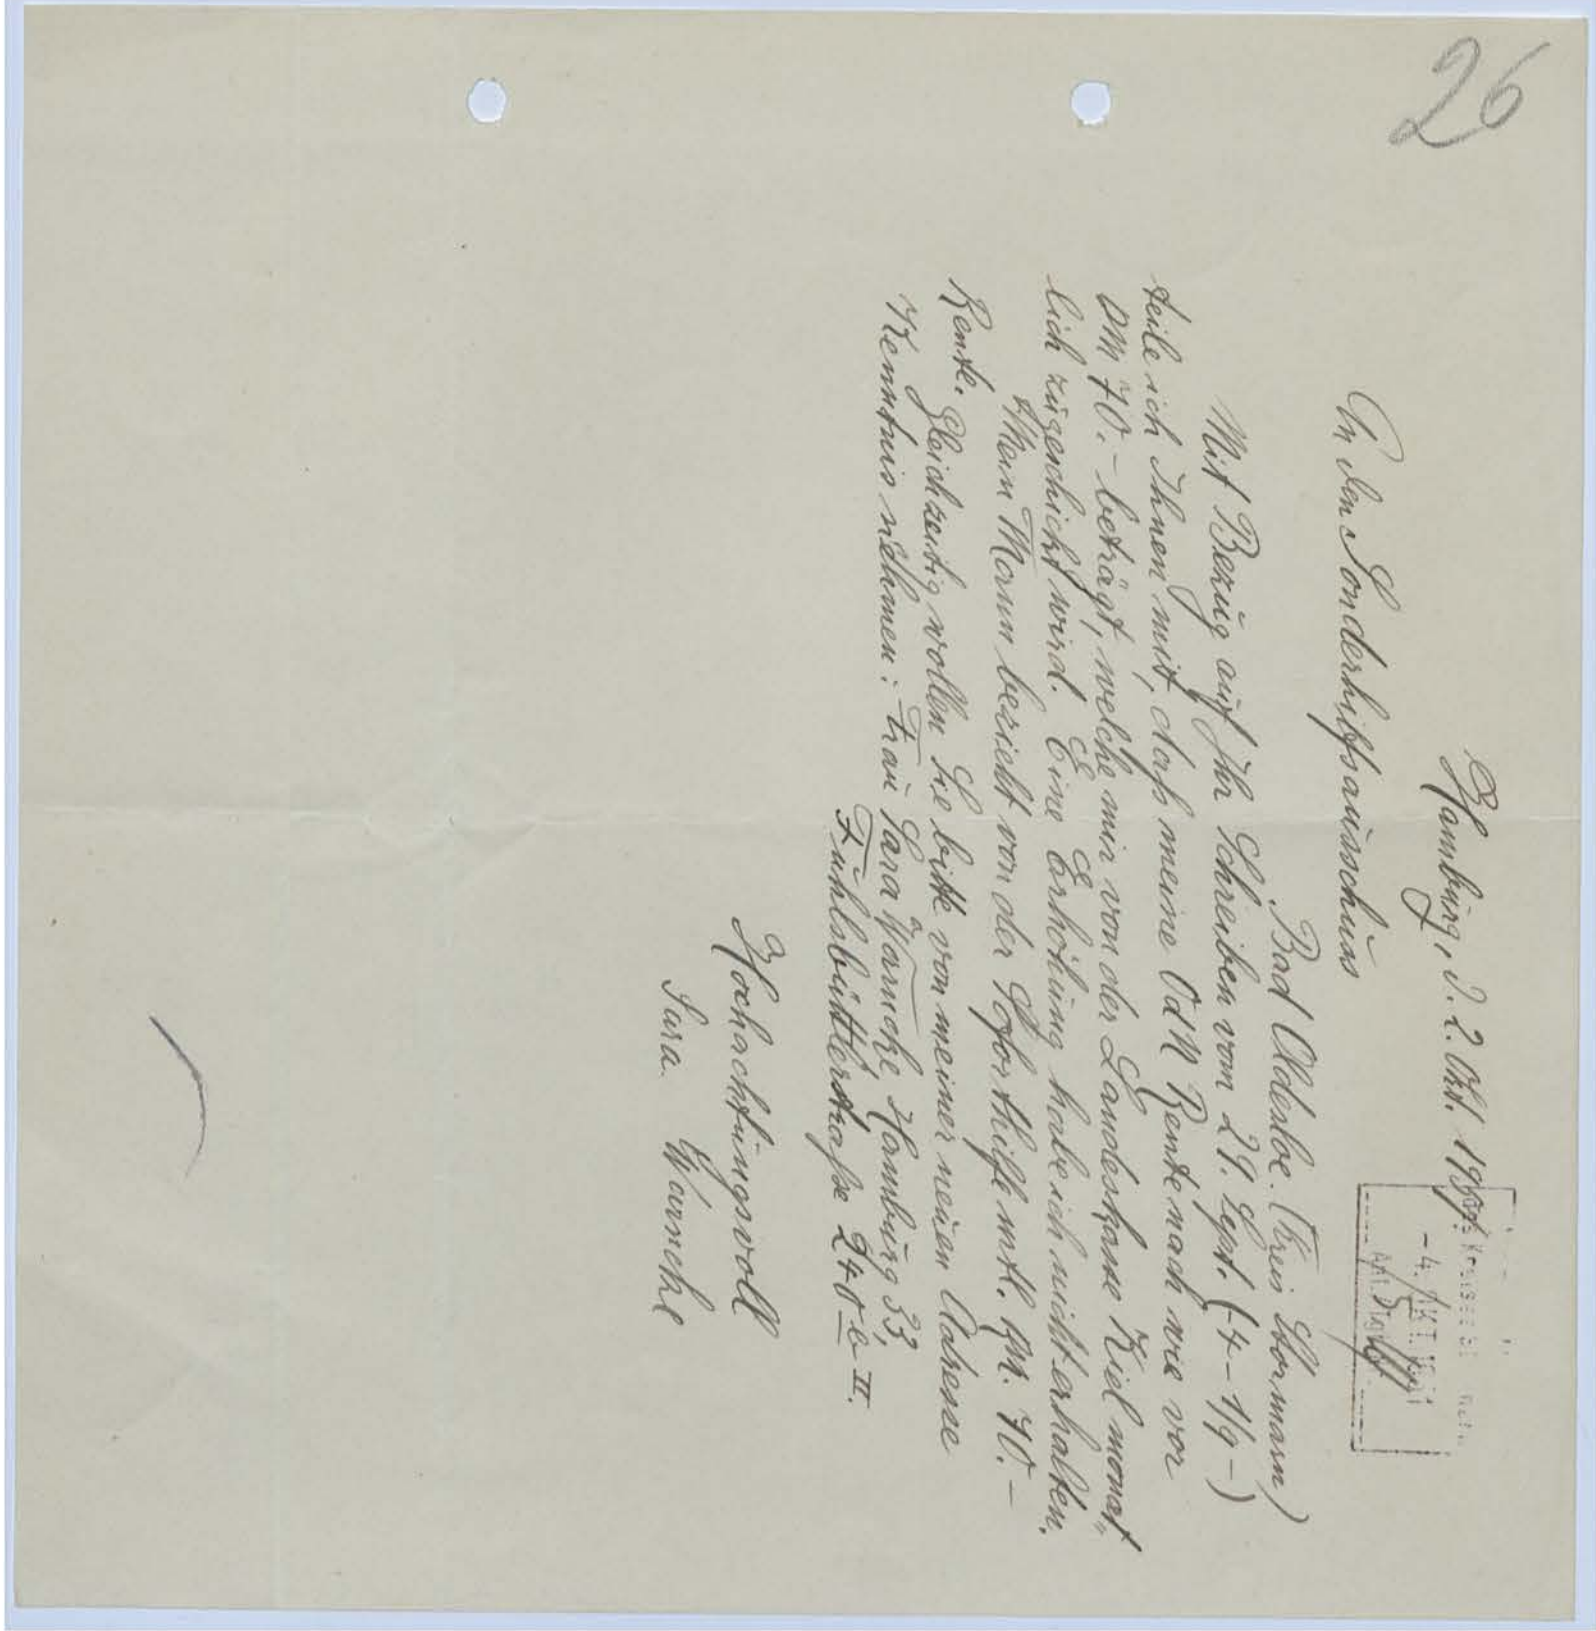 26
Hamburg, d. 2. Okt. 19
-4. OKT.
An den Sonderhilfsausschuss
Bad Oldesloe. (Kreis Stormarn)
Mit Bezug auf Ihr Schreiben vom 29. Sept. (-4-1/9-)
teile ich Ihnen mit, dass meine OdN Rente nach wie vor
DM 70.- beträgt, welche mir von der Landeskasse Kiel monat„
lich zugeschickt wird. Eine Erhöhung habe ich nicht erhalten.
Mein Mann bezieht von der Soforthilfe mtl. DM. 70.-
Rente. Gleichzeitig wollen Sie bitte von meiner neuen Adresse
Kenntnis nehmen: Frau Sara Warncke Hamburg 33,
Fuhlsbüttlerstraße 240 b II.
Hochachtungsvoll
Sara Warncke